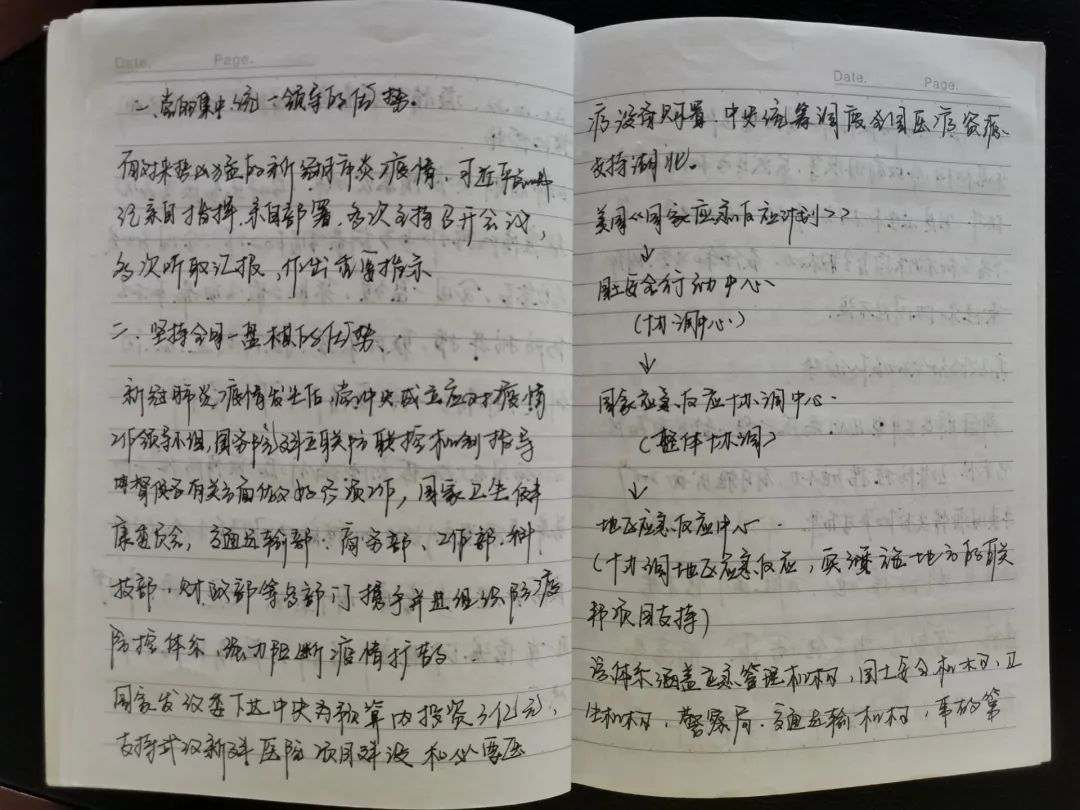 Date. Page.
一、党的集中统一领导的优势.
面对来势凶猛的新冠肺炎疫情, 习近平总书
记亲自指挥.亲自部署.多次主持召开会议,
多次听取汇报, 作出重要指示
二、坚持全国一盘棋的优势、
新冠肺炎疫情发生后,党中央成立应对疫情
工作领导小组,国务院建立联防联控机制指导
有关方面做好各项工作, 国家卫生健
康委员会, 交通运输部、商务部、工信部.科
技部、财政部等多部门携手并且组织防疫
防控体系, 强力阻断疫情扩散
国家发改委下达中央预算内投资3亿元,
支持武汉新建医院项目建设和必要医
Date. Page.
疗设备购置.中央统筹调度全国医疗资源
支持湖北。
美国《国家应急反应计划》
↓
国土安全行动中心、
(协调中心)
↓
国家应急反应协调中心.
(整体协调)
↓
地区应急反应中心.
(协调地区应急反应, 实施地方的联
邦项目支持)
该体系涵盖应急管理机构, 国土安全机构, 卫
生机构, 警察局.交通运输机构, 事故第